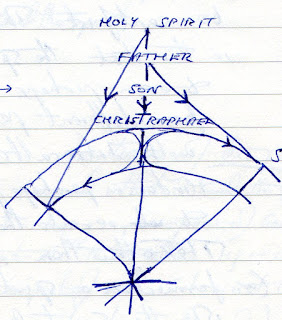 HOLY SPIRIT
FATHER
SON
CHRISTRAPHAEL
S